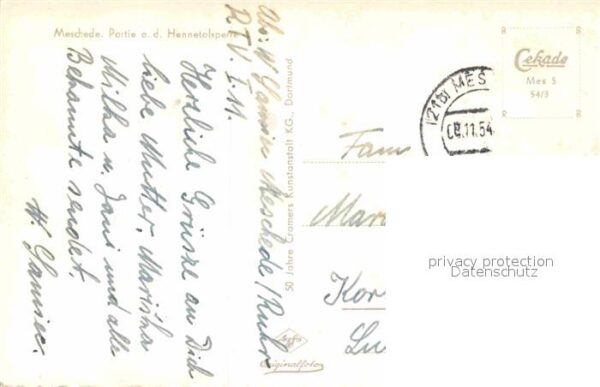 Meschede. Partie a. d. Hennetalsperre
Abs: W
Meschede/Ruhr
R.T.V. I. 11.
Herzliche Grüsse an Dich
liebe Mutter, Marisha
Milka u. Jani und alle
Bekannte sendet
50 Jahre Cramers Kunstanstalt KG., Dortmund
Agfa
Originalfoto
Cekade
Mes 5
54/3
(21b) MES
09.11.54
Fam
Mar
Kor
Lu
privacy protection
Datenschutz